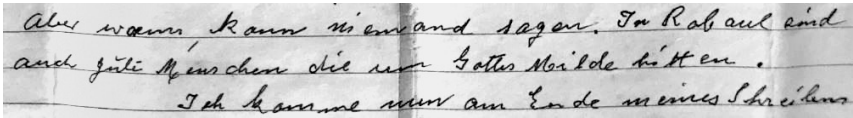 Aber wann, kann niemand sagen. In Rabaul sind
auch gute Menschen die um Gottes Milde bitten.
Ich komme nun am Ende meines Schreibens